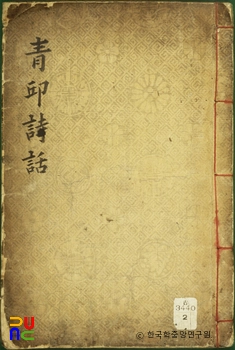 青邱詩話
3440
2
© 한국학중앙연구원